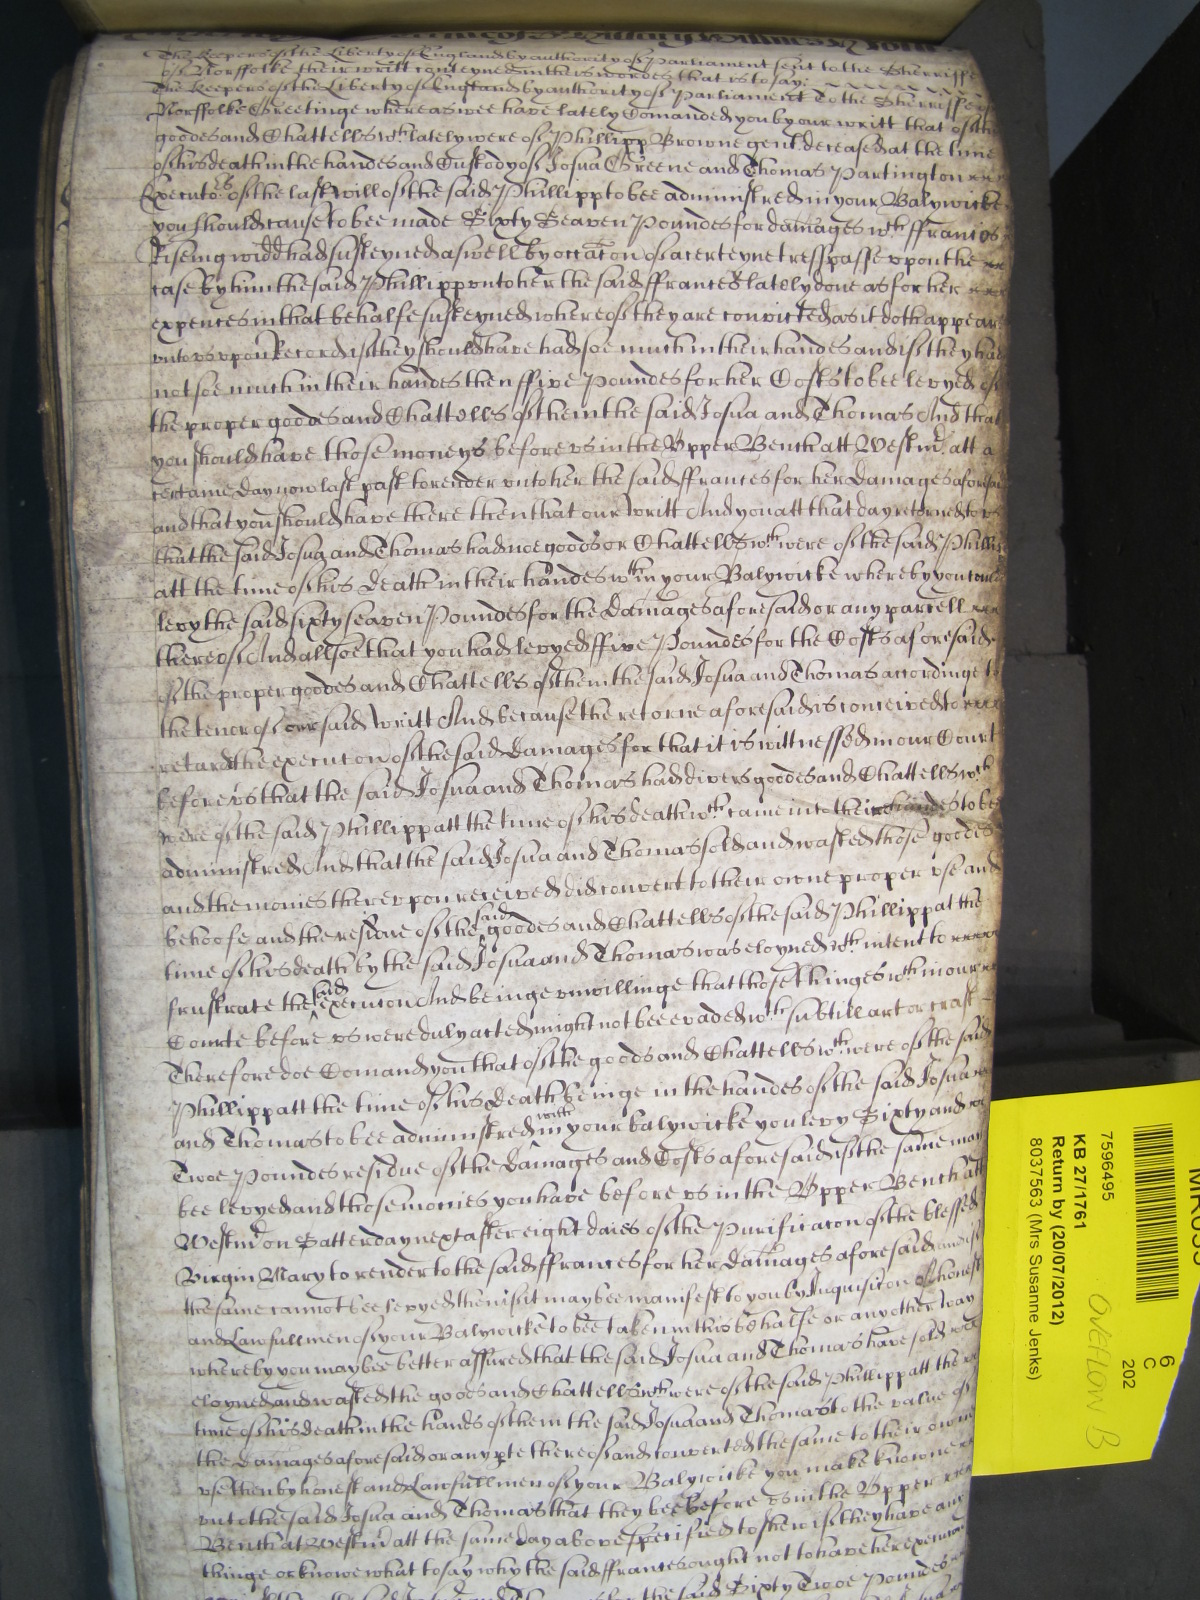 The Keepers of the Liberty of England by authority of Parliament sent to the Sherriffe
of Norffolke their writt conteyned in theis wordes that is to say:
The Keepers of the Liberty of England by authority of Parliament To the Sherriffe of
Norffolke Greetinge whereas wee have lately Comanded you by our writt that of the
goodes and Chattells wch lately were of Phillipp Browne gent. deceased at the time
of his death in the handes and Custody of Josua Greene and Thomas Partington
Executors of the last will of the said Phillipp to bee administred in your Balywicke
you should cause to bee made Sixty Seaven Poundes for damages wch ffrances
Riseing widd had susteyned aswell by occacon of a certeyne tresspasse upon the
case by him the said Phillipp unto her the said ffrances lately done as for her
expences in that behalfe susteyned whereof they are convicted as it doth appeare
unto us upon Record if they should have had soe much in their handes and if they had
not soe much in their handes then ffive Poundes for her Costs to bee levyed of
the proper goodes and Chattells of them the said Josua and Thomas And that
you should have those moneys before us in the Upper Bench att Westmr. att a
certaine day now last past to render unto her the said ffrances for her Damages aforesaid
and that you should have there then that our Writt And you att that day retorned to us
that the said Josua and Thomas had noe goods or Chattells wch were of the said Phillipp
att the time of his Death in their handes wthin your Balywicke whereby you could
levy the said sixty seaven Poundes for the Damages aforesaid or any parcell
thereof And allsoe that you had levyed ffive Poundes for the Costs aforesaid
of the proper goodes and Chattells of them the said Josua and Thomas accordinge to
the tenor of our said Writt And because the retorne aforesaid is conceived to
retard the execucon of the said Damages for that it is wittnessed in our Court
before us that the said Josua and Thomas had divers goodes and Chattells wch
were of the said Phillipp att the time of his death wch came into their handes to bee
administred And that the said Josua and Thomas sold and wasted those goodes
and the monies thereupon received did convert to their owne proper use and
behoofe and the residue of the said goodes and Chattells of the said Phillipp at the
time of his death by the said Josua and Thomas was eloyned wth intent to
frustrate the said execucon And beinge unwillinge that those thinges wch in our
Courte before us were duly acted might not bee evaded wth subtill art or craft
Therefore doe Comand you that of the goods and Chattells wch were of the said
Phillipp att the time of his Death beinge in the handes of the said Josua
and Thomas to bee administred within your balywicke you levy Sixty and
Twoe Poundes residue of the Damages and Costs aforesaid if the same may
bee levyed and those monies you have before us in the Upper Bench att
Westmr on Satterday next after eight daies of the Purificacon of the blessed
Virgin Mary to render to the said ffrances for her Damages aforesaid and if
the same cannot bee levyed then if it may bee manifest to you by Inquisicon of honest
and Lawfull men of your Balywicke to bee taken in this behalfe or any other way
whereby you may bee better assured that the said Josua and Thomas have sold
eloyned and wasted the goods and Chattells wch were of the said Phillipp att the
time of his death in the hands of them the said Josua and Thomas to the value of
the Damages aforesaid or any pte thereof and converted the same to their owne
use then by honest and Lawfull men of your Balywicke you make knowne
unto the said Josua and Thomas that they bee before us in the Upper
Bench at Westmr att the same day above specified to shew if they have any
thinge or knowe what to say why the said ffrances ought not to have her execucon
for the said Sixty Twoe Poundes
MR055
6
C
202
7596495
KB 27/1761
Return by (20/07/2012)
8037563 (Mrs Susanne Jenks)
OVERFLOW B